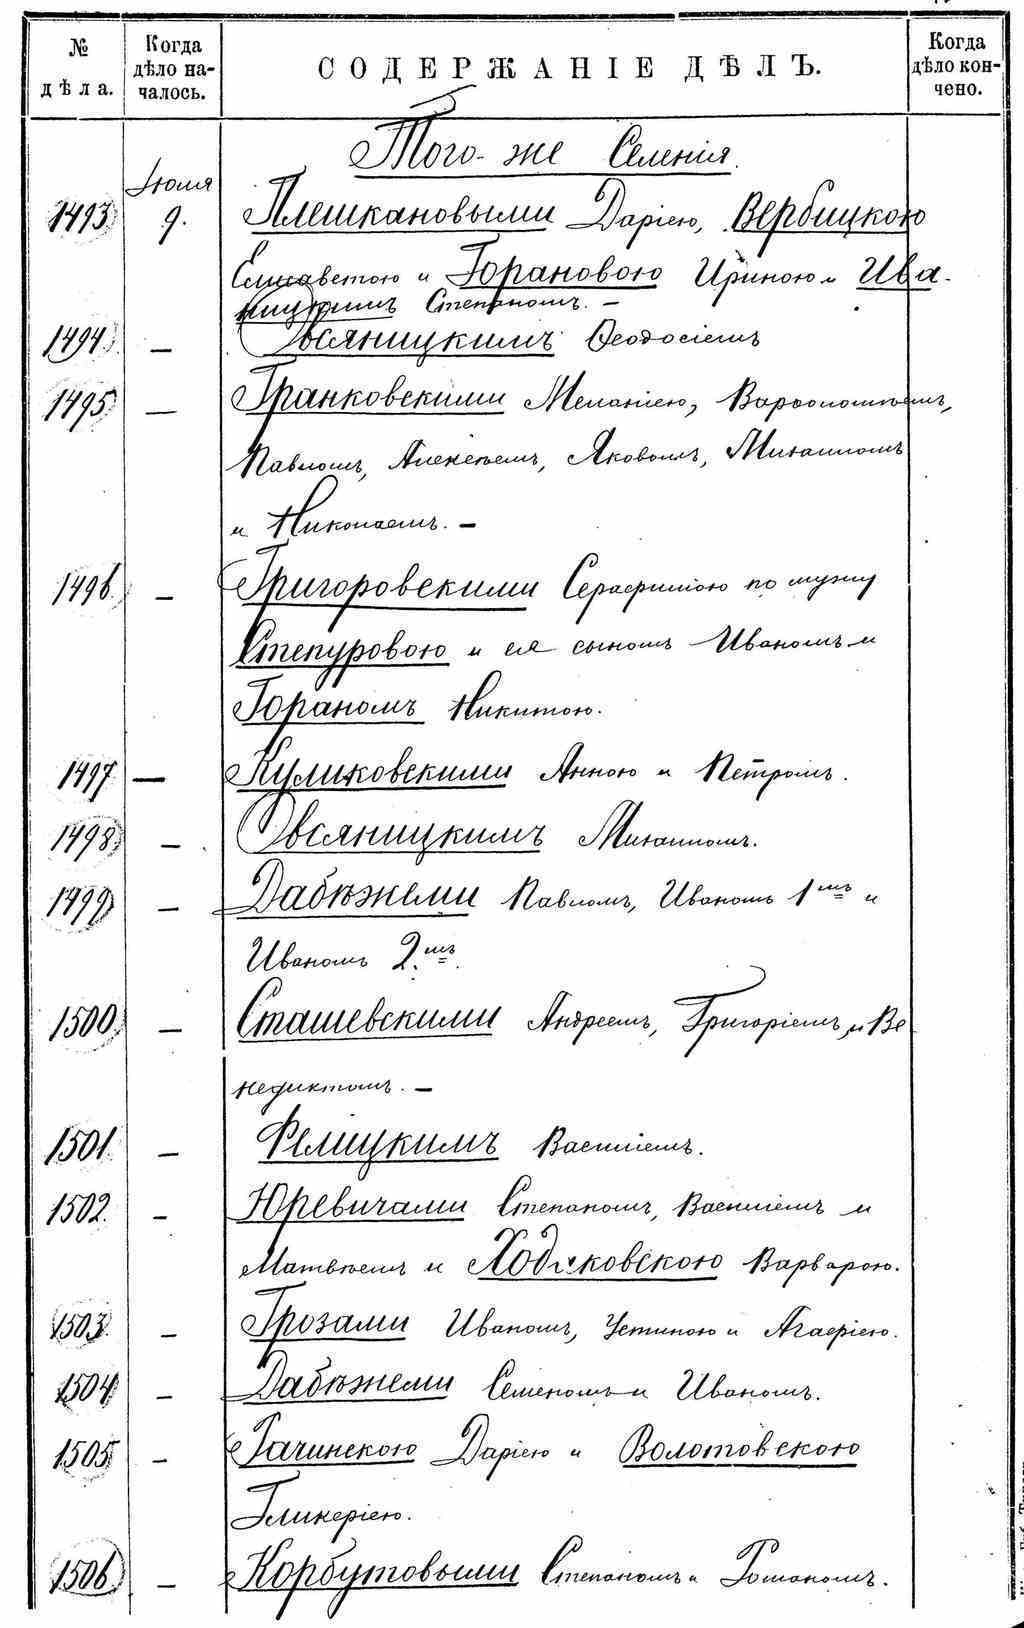 № дѣла.
Когда дѣло началось.
СОДЕРЖАНІЕ ДѢЛЪ.
Когда дѣло кончено.
Того-же Селенія.
Іюля
1493 9. Плешкановыми Даріею, Вербицкою
Елисаветою и Горановою Ириною и Ива-
ницкимъ Степаномъ. —
1494 — Овсяницкимъ Ѳеодосіемъ
1495 — Гранковскими Меланіею, Варѳоломѣемъ,
Павломъ, Алексѣемъ, Яковомъ, Михаиломъ
и Николаемъ. —
1496 — Григоровскими Серафимою по мужу
Степуровою и ея сыномъ Иваномъ и
Гораномъ Никитою.
1497 — Куликовскими Анною и Петромъ.
1498 — Овсяницкимъ Михаиломъ.
1499 — Дабѣжеми Павломъ, Иваномъ 1мъ и
Иваномъ 2.мъ
1500 — Сташевскими Андреемъ, Григоріемъ, и Ве
недиктомъ. —
1501 — Василіемъ.
1502. — Юревичами Степаномъ, Василіемъ и
Матвѣемъ и Варварою.
1503. — Грозами Иваномъ, Устиною и Агафіею.
1504 — Дабѣжеми Семеномъ и Иваномъ.
1505 — Рачинскою Даріею и Волотовскою
Гликеріею.
1506 — Корбутовыми Степаномъ и Романомъ.